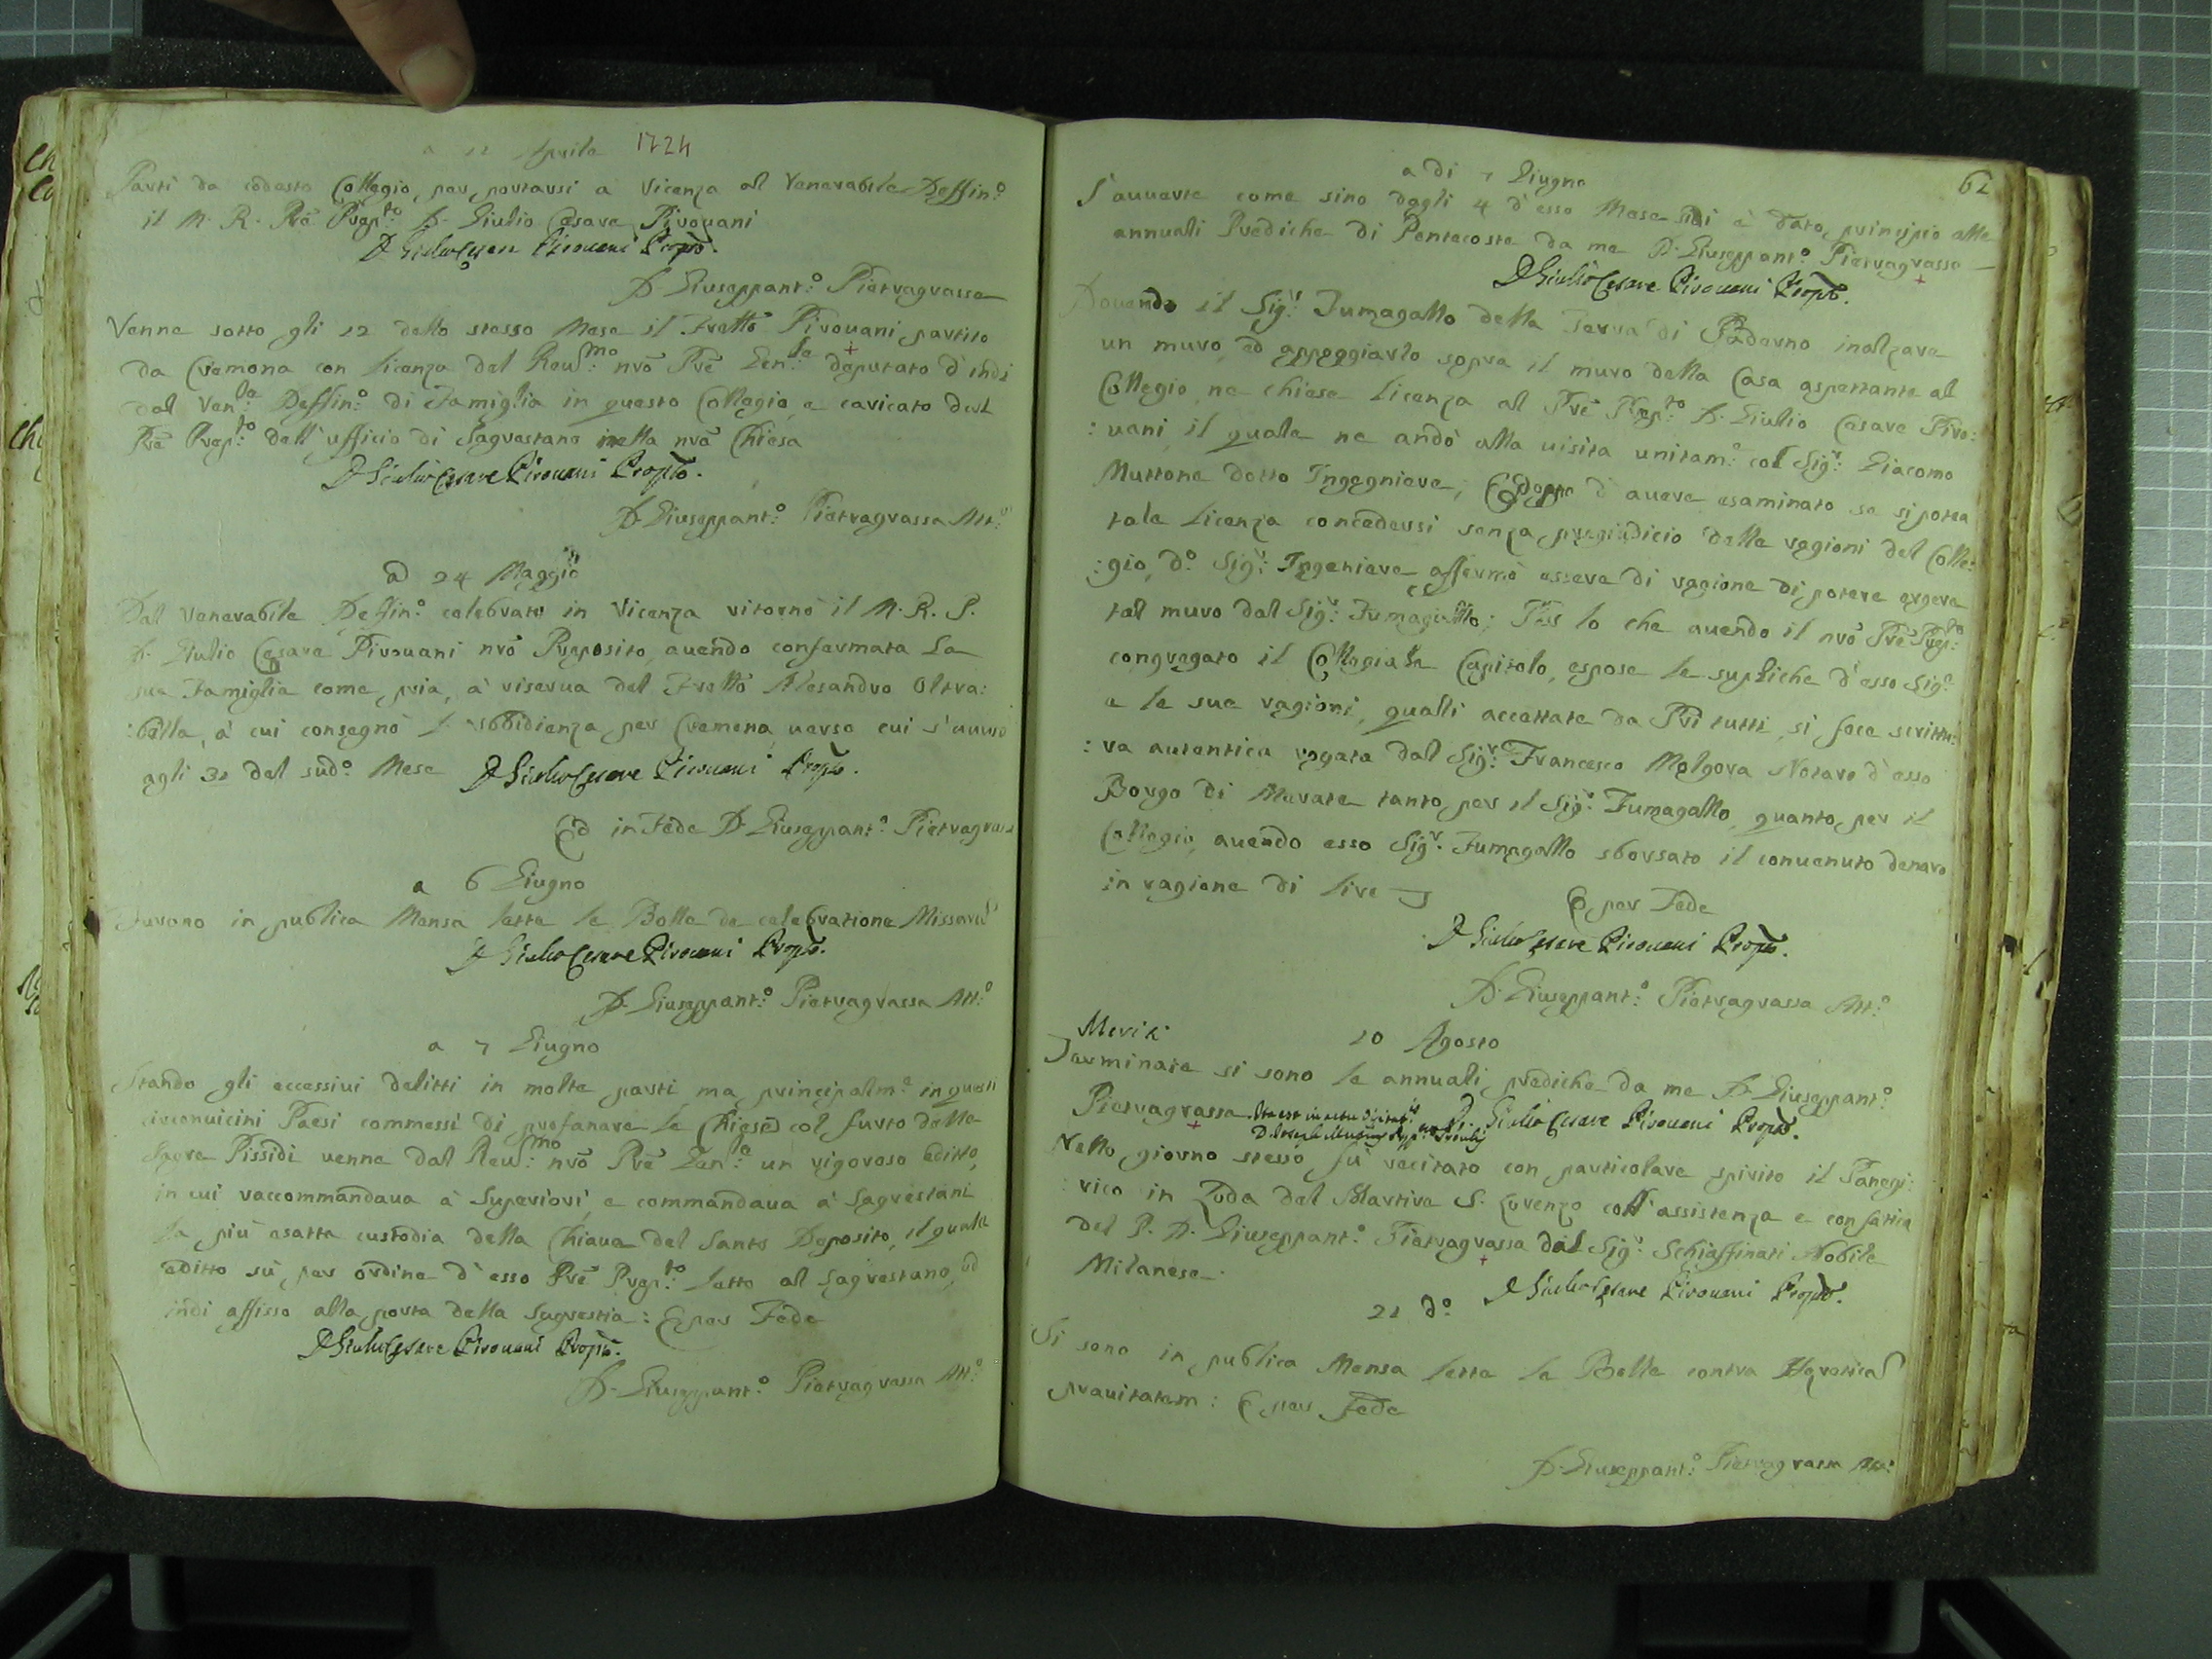 Aprile 1724
Partì da codesto Collegio per portarsi a Vicenza al Venerabile Deffin.o
il M. R. Prē Prep.to D. Giulio Cesare Pirovani
D Giulio Cesare Pirouani Propto.
D. Giuseppant.o Pietragrassa
Venne sotto gli 12 dello stesso Mese il Fratt.o Pirouani partito
da Cremona con licenza del Reu.mo nrō Prē Gen.le deputato d'indi
dal Ven.le Deffin.o di Famiglia in questo Collegio, e caricato dal
Prē Prep.to dell'ufficio di Sagrestano nella nrā Chiesa
D Giulio Cesare Pirouani Propto.
D. Giuseppant.o Pietragrassa Att.o
a 24 Maggio
Dal Venerabile Deffin.o celebrato in Vicenza ritornò il M. R. P.
D. Giulio Cesare Pirouani nrō Preposito, auendo confermata la
sua Famiglia come pria, à riserua del Fratt.o Alesandro Oltra:
:bella, à cui consegnò l'obbidienza per Cremona uerso cui s'auuiò
agli 31 del sud.o Mese D Giulio Cesare Pirouani Propto.
Ed in Fede D. Giuseppant.o Pietragrassa
a 6 Giugno
Furono in publica Mensa lette le Bolle de celebratione Missarū
D Giulio Cesare Pirouani Propto.
D. Giuseppant.o Pietragrassa Att.o
a 7 Giugno
Stando gli eccessiui delitti in molte parti, ma principalm.e in questi
circonuicini Paesi commessi di profanare le Chiese col furto delle
Sagre Pissidi uenne dal Reu.mo nrō Prē Gen.le un rigoroso editto,
in cui raccommandaua à Superiori, e commandaua à Sagrestani
la più esatta custodia della Chiaue del Santo Deposito, il quale
editto fù per ordine d'esso Prē Prep.to letto al Sagrestano, ed
indi affisso alla porta della Sagrestia: E per Fede
D Giulio Cesare Pirouani Propto.
D. Giuseppant.o Pietragrassa Att.o
62
a di 7 Giugno
S'auuerte come sino dagli 4 d'esso Mese si di è dato principio alle
annuali Prediche di Pentecoste da me D. Giuseppant.o Pietragrassa
D Giulio Cesare Pirouani Propto.
Douendo il Sig.r Fumagallo della Terra di Paderno inalzare
un muro, ed appoggiarlo sopra il muro della Casa aspettante al
Collegio, ne chiese licenza al Prē Prep.to D. Giulio Cesare Piro:
:uani, il quale ne andò alla uisita unitam.e col Sig.r Giacomo
Muttone dotto Ingegniere; E doppo d'auere esaminato se si potea
tale licenza concedersi senza pregiudicio delle ragioni del Colle:
:gio, d.o Sig.r Ingeniere affermò essere di ragione di potere ergere
tal muro dal Sig.r Fumagallo; Per lo che auendo il nrō Prē Prep.to
congregato il Collegiale Capitolo, espose le supliche d'esso Sig.r
e le sue ragioni, qualli accettate da Pri tutti, si fece scrittu:
:ra autentica rogata dal Sig.r Francesco Molgora Notaro d'esso
Borgo di Merate tanto per il Sig.r Fumagallo, quanto per il
Collegio, auendo esso Sig.r Fumagallo sborsato il conuenuto denaro
in ragione di lire
E per Fede
D Giulio Cesare Pirouani Propto.
D. Giuseppant.o Pietragrassa Att.o
10 Agosto
Terminate si sono le annuali prediche da me D. Giuseppant.o
Pietragrassa D. Giulio Cesare Pirouani Propto.
Ita est in actu
Nello giorno stesso fù recitato con particolare spirito il Panegi:
:rico in Loda del Martire S. Lorenzo coll'assistenza e con fatica
del P. D. Giuseppant.o Pietragrassa dal Sig.r Schiaffinati Nobile
Milanese.
D Giulio Cesare Pirouani Propto.
21 d.o
Si sono in publica Mensa lette le Bolle contra Hęreticā
prauitatem: E per Fede
D. Giuseppant.o Pietragrassa Att.o